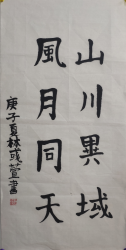 山川異域
風月同天
庚子夏林彧萱書